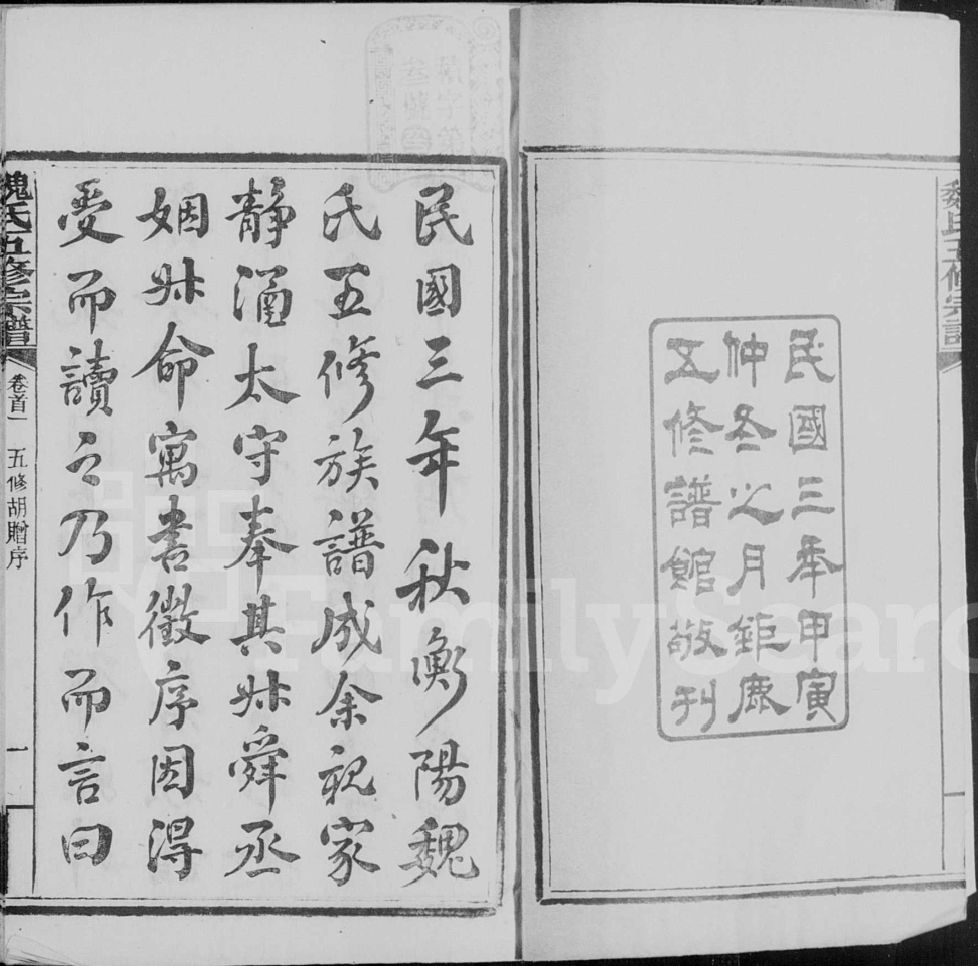 魏氏五修宗譜
民國三年甲寅
仲冬之月鉅鹿
五修譜館敬刊
民國三年秋衡陽魏
氏五修族譜成余親家
靜涵太守奉其叔舜丞
姻叔命寓書徵序因得
受而讀之乃作而言曰
魏氏五修宗譜
卷首一
五修胡贈序
一
FamilySearch